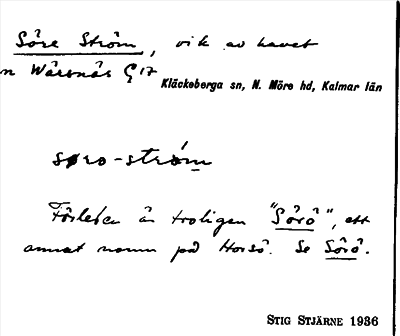 Söre Ström, vik av havet
n Värsnäs G17
Kläckeberga sn, N. Möre hd, Kalmar län
søro-stróm
Förleden är troligen "Sörö", ett
annat namn på Horsö. Se Sörö.
STIG STJÄRNE 1936